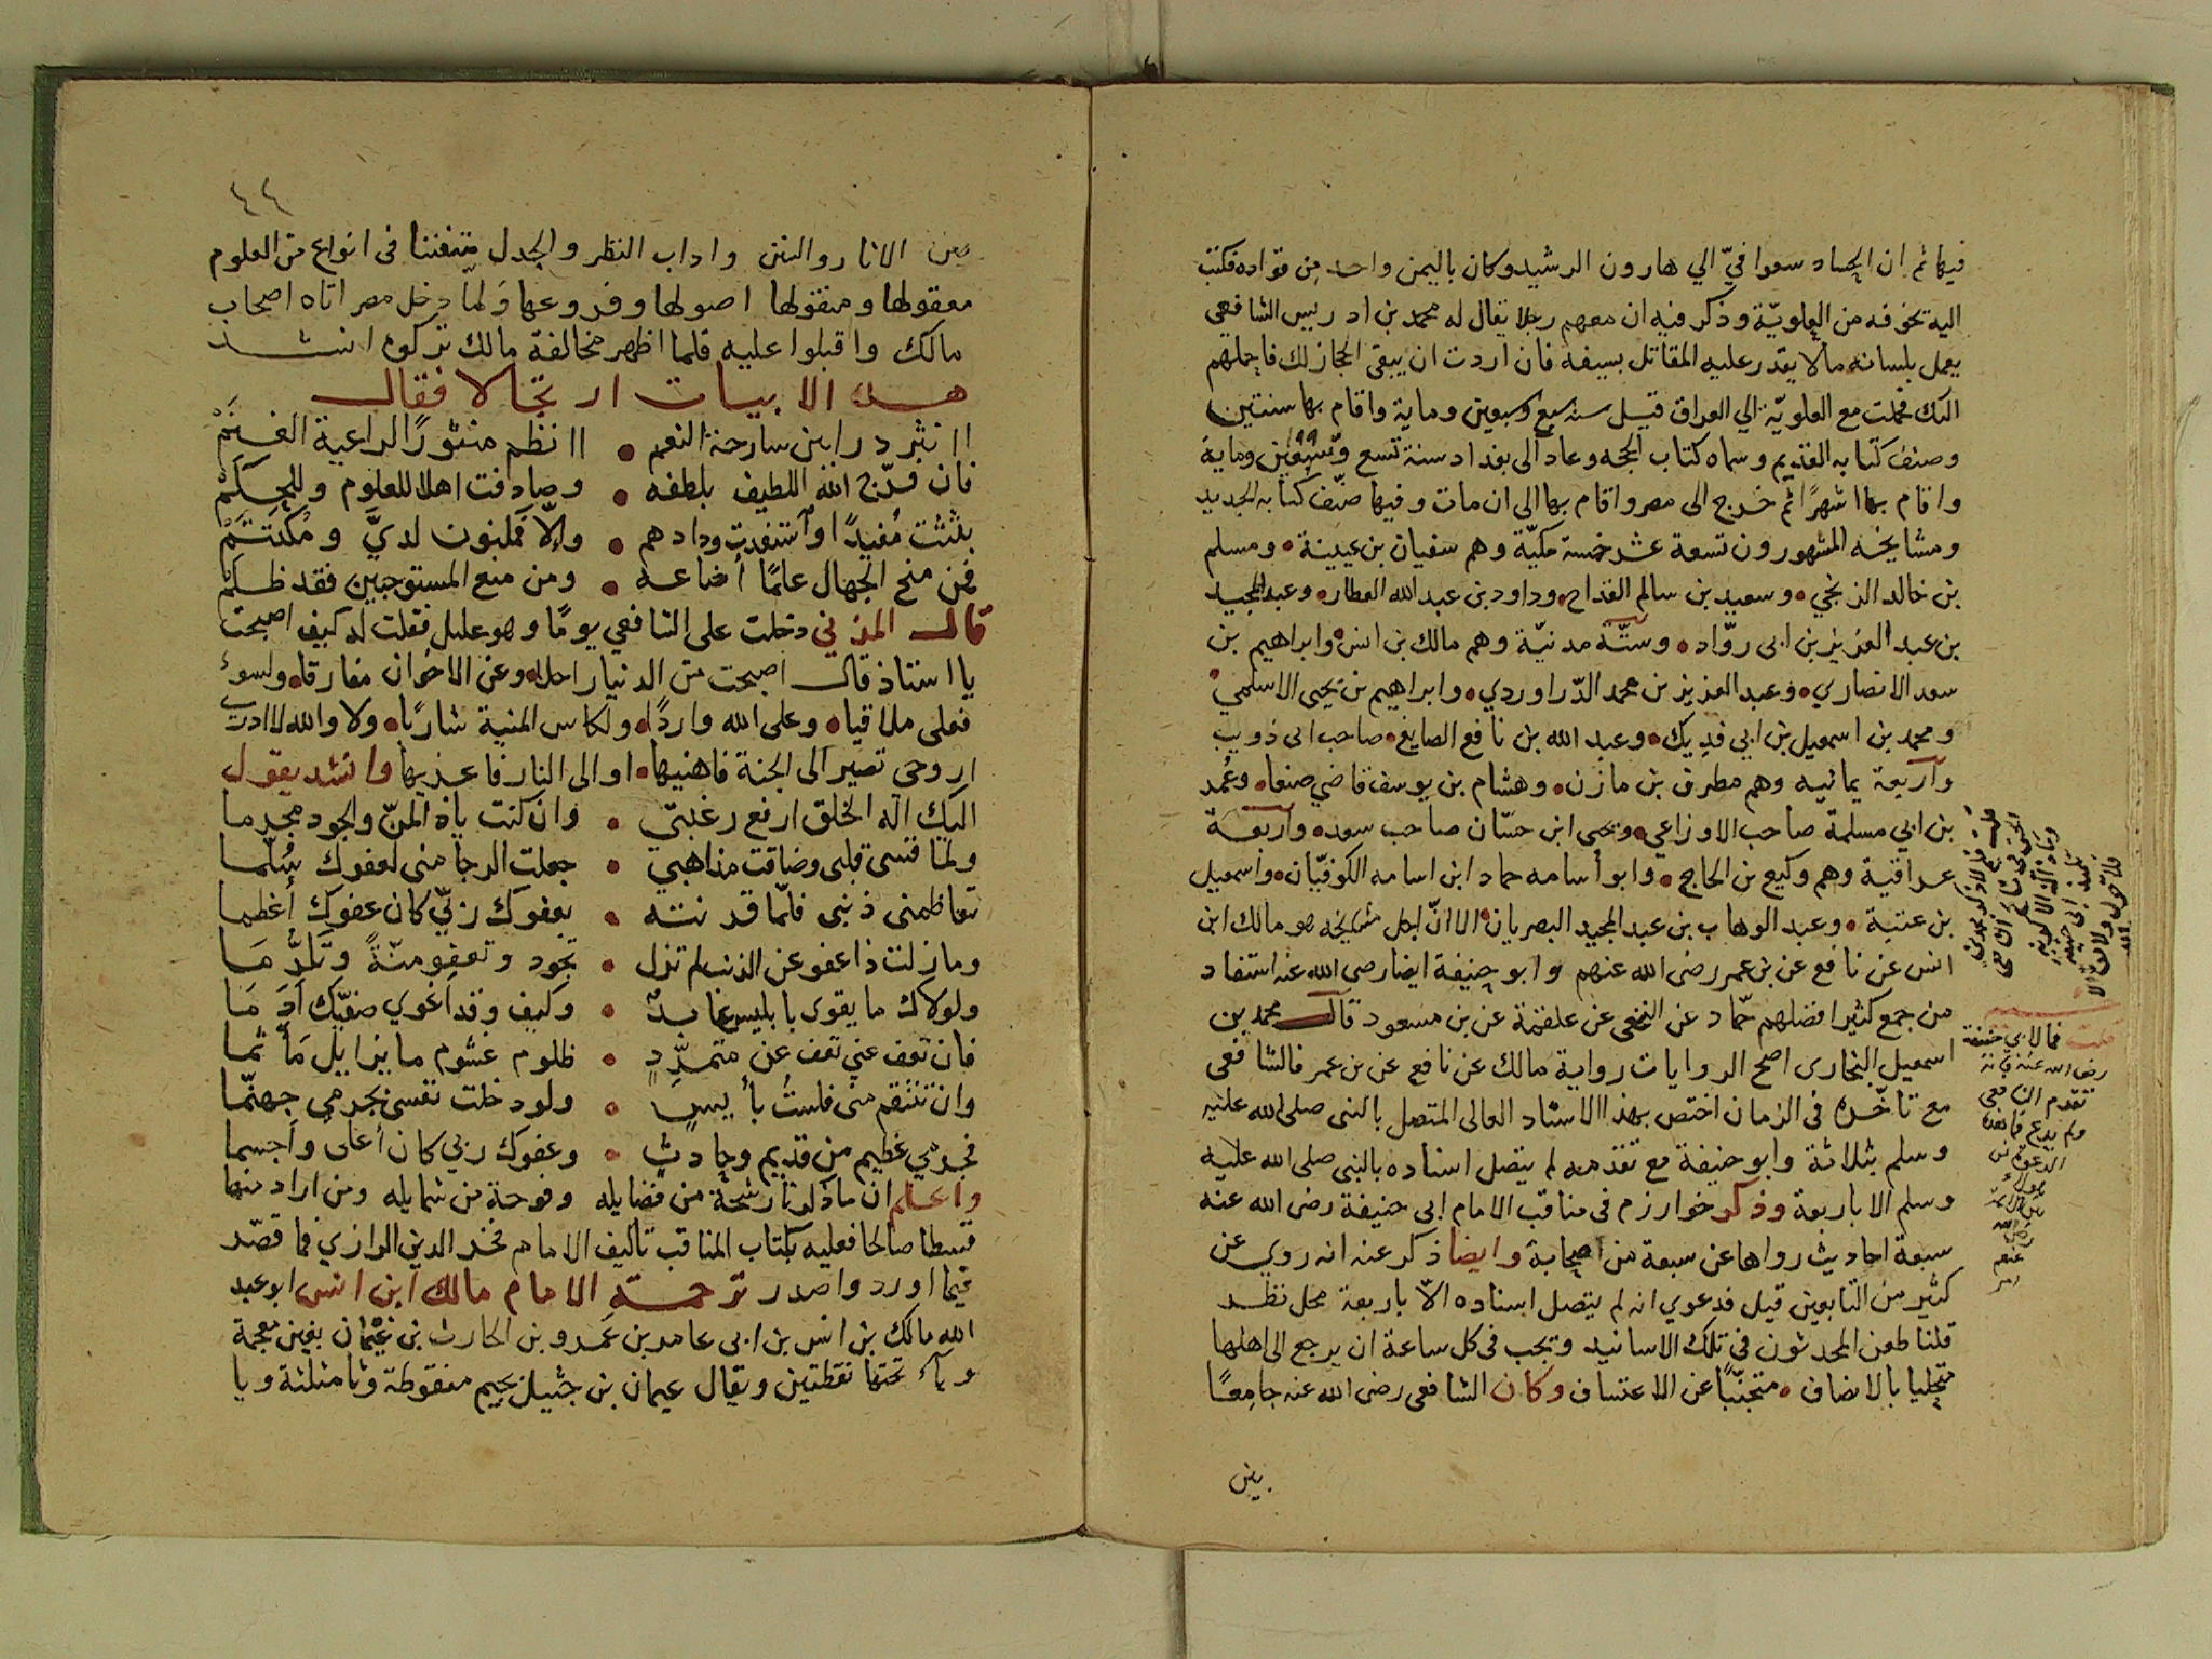 فيها ثم ان الحساد سعوا فيّ الي هارون الرشيد وكان باليمن واحد من قواده فكتب
اليه يخوفه من العلويّة وذكر فيه ان معهم رجلا يقال له محمد بن ادريس الشافعي
يعمل بلسانه مالا يقدر عليه المقاتل بسيفه فان اردت ان يبقى الحجاز لك فاحملهم
اليك فحملت مع العلويّة الي العراق قبل سنه سبع وسبعين وماية واقام بها سنتين
وصنف كتابه القديم وسماه كتاب الحجه وعاد الى بغداد سنة تسع وتسعين وماية
واقام بها اشهرًا ثم خرج الى مصر واقام بها الى ان مات وفيها صنّف كتابه الجديد
ومشايخه المشهورون تسعة عشر خمسة مكيّة وهم سفيان بن عيينة ومسلم
بن خالد الزنجي وسعيد بن سالم القداح وداود بن عبد الله العطار وعبد المجيد
بن عبد العزيز بن ابى روّاد وستّة مدنيّة وهم مالك بن انس وابراهيم بن
سعد الانصاري وعبد العزيز بن محمد الدّراوردي وابراهيم بن يحيى الاسلمي
ومحمد بن اسمعيل بن ابي فديك وعبد الله بن نافع الصايغ صاحب ابى ذويب
وآربعة يمانيه وهم مطرف بن مازن وهشام بن يوسف قاضي صنعا وعُمد
بن ابي مسلمة صاحب الاوزاعي ويحيى ابن حسّان صاحب سعد واربعة
عراقية وهم وكيع بن الحاج وابو أسامه حماد ابن اسامه الكوفيّان واسمعيل
بن عتبة وعبد الوهاب بن عبد المجيد البصريان الا انّ اجل مشايخه هو مالك ابن
انس عن نافع عن بن عمر رضى الله عنهم وابو حنيفة ايضا رضى الله عنه استفاد
من جمع كثير افضلهم حمّاد عن النخعي عن علقمة عن بن مسعود قال محمد بن
اسمعيل البخارى اصح الروايات رواية مالك عن نافع عن بن عمر فالشافعى
مع تاخّره فى الزمان اختص بهذا الاسناد العالى المتصل بالنبى صلى الله عليه
وسلم بثلاثة وابو حنيفة مع تقدمه لم يتصل اسناده بالنبى صلى الله عليه
وسلم الا باربعة وذكر خوارزم فى مناقب الامام ابى حنيفة رضى الله عنه
سبعة احاديث رواها عن سبعة من اصحابة وايضا ذكر عنه انه روي عن
كثير من التابعين قيل فدعوي انه لم يتصل اسناده الاّ باربعة محل نظر
قلنا طعن المحدثون في تلك الاسانيد ويجب فى كل ساعة ان يرجع الى اهلها
متحليا بالانصاف متجنّبًا عن الاعتساف وكان الشافعى رضى الله عنه جامعًا
بين
قلت فالابي حنيفة
رضى الله عنه فانه
تقدم الشافعي
ولم يدع
عنهم
٤٤
بين الاثار والسنن واداب النظر والجدل متفننا فى انواع من العلوم
معقولها ومنقولها اصولها وفروعها ولمّا دخل مصر اتاه اصحاب
مالك واقبلوا عليه فلما اظهر مخالفة مالك تركوه انشد
هذه الابيات ارتجالا فقال
اانثر درا بين سارحة النعم اانظم منثورًا لراعية الغنم
فان فرّج الله اللطيف بلطفه وصادفت اهلا للعلوم وللحكم
بثثت مُفيدًا واستفدت ودادهم والّا فمكنون لديَّ ومُكتتم
فمن منح الجهال علمًا أضاعه ومن منع المستوجبين فقد ظلم
قال المزني دخلت على الشافعي يومًا وهو عليل فقلت له كيف اصبحت
يا استاذ قال اصبحت من الدنيا راحلا وعن الاخوان مفارقا ولسوء
فعلى ملاقيا وعلى الله واردًا ولكاس المنية شاربًا ولا والله لا ادرى
اروحى تصير الى الجنة فاهنيها او الى النار فاعزيها وانشد يقول
اليك اله الخلق ارفع رغبتي وان كنت ياذ المنّ والجود مجرما
ولمّا قسى قلبى وضاقت مذاهبي جعلت الرجا منى لعفوك سُلّما
تعاظمنى ذنبى فلمّا قرنته بعفوك ربّي كان عفوك أعظما
وما زلت ذا عفو عن الذنب لم تزل تجود وتعفو منّةً وتكرُّمَا
ولولاك ما يقوى بابليس عابدٌ وكيف وقد اغوي صفيّك آدَمَا
فان تعف عني تعف عن متمرّدٍ ظلوم غشوم ما يزايل مأثما
وان تنتقم منى فلستُ بأيسٍ ولو دخلت نفسى بجرمي جهنّما
فجرمي عظيم من قديم وحادثٍ وعفوك ربي كان أعلى وأجسما
واعلم ان ما ذكرنا رشحة من فضايله وفوحة من شمايله ومن اراد منها
قسطا صالحا فعليه بكتاب المناقب تاليف الامام فخر الدين الرازي فما قصّر
فيما اورد واصدر ترجمة الامام مالك ابن انس ابو عبد
الله مالك بن انس بن ابى عامر بن عَمرو بن الحارث بن غيمان بغين معجمة
وياء تحتها نقطتين ويقال عيمان بن جثيل بجيم منقوطة وثا مثلثة ويا